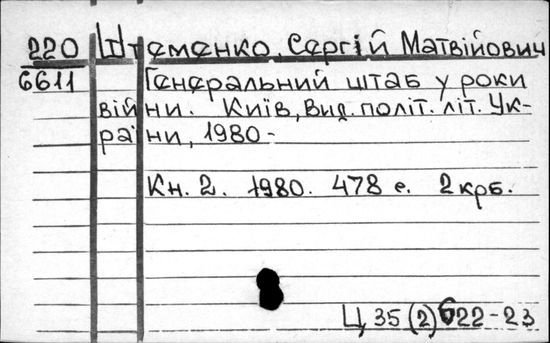 220 Штеменко, Сергій Матвійович
6611 Генеральний штаб у роки
війни. Київ, Вид. політ. літ. Ук-
раїни, 1980-
Кн. 2. 1980. 478 с. 2 крб.
Ц 35 (2) 622-23